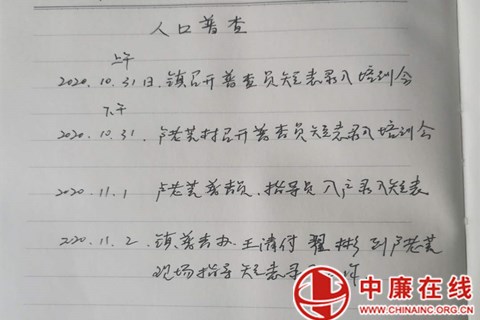 人口普查
上午
2020.10.31日.镇召开普查员短表录入培训会
下午
2020.10.31.卢老荒村召开普查员短表录入培训会
2020.11.1 卢老荒普查员.指导员入户录入短表
2020.11.2.镇普查办 王清付 翟彬到卢老荒
现场指导短表录
中廉在线
WWW.CHAINAINC.ORG.CN